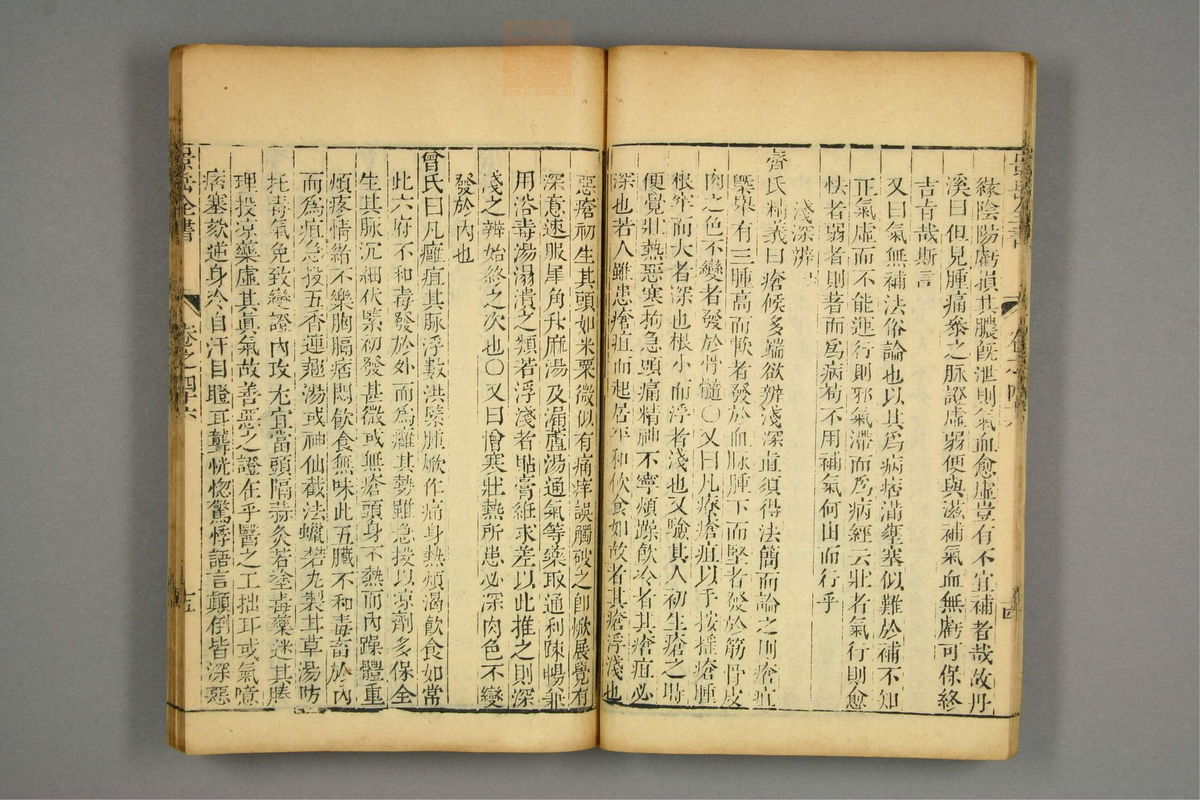 緣陰陽虧損其膿既泄則氣血愈虛豈有不宜補者哉故丹
溪曰但見腫痛參之脉證虛弱便與滋補氣血無虧可保終
吉旨哉斯言
又曰氣無補法俗論也以其為病痞滿壅塞似難於補不知
正氣虛而不能運行則邪氣滯而為病經云壯者氣行則愈
怯者弱者則著而為病苟不用補氣何由而行乎
淺深辨
齊氏精義曰瘡候多端欲辨淺深直須得法簡而論之則瘡疽
槩舉有三腫高而軟者發於血脉腫下而堅者發於筋骨皮
肉之色不變者發於骨髓○又曰凡療瘡疽以手按搖瘡腫
根牢而大者深也根小而浮者淺也又驗其人初生瘡之時
便覺壯熱惡寒拘急頭痛精神不寧煩躁飲冷者其瘡疽必
深也若人雖患瘡疽而起居平和飲食如故者其瘡浮淺也
惡瘡初生其頭如米粟微似有痛痒誤觸破之即焮展覺有
深意速服犀角升麻湯及漏蘆湯通氣等藥取通利疎暢兼
用浴毒湯溻漬之類若浮淺者貼膏維求差以此推之則深
淺之辨始終之次也○又曰憎寒壯熱所患必深肉色不變
發於內也
曾氏曰凡癰疽其脉浮數洪緊腫焮作痛身熱煩渴飲食如常
此六府不和毒發於外而為癰其勢雖急投以凉劑多保全
生其脉沉細伏緊初發甚微或無瘡頭身不熱而內躁體重
煩疼情緒不樂胸膈痞悶飲食無味此五臟不和毒畜於內
而為疽急投五香連翹湯或神仙截法蠟礬丸製甘草湯防
托毒氣免致變證內攻尤宜當頭隔蒜灸若塗毒藥迷其腠
理投凉藥虛其真氣故善惡之證在乎醫之工拙耳或氣噫
痞塞欬逆身冷自汗目瞪耳聾恍惚驚悸語言顛倒皆深惡
景岳全書
卷之四十六
十五
景岳全書
卷之四十六
十四